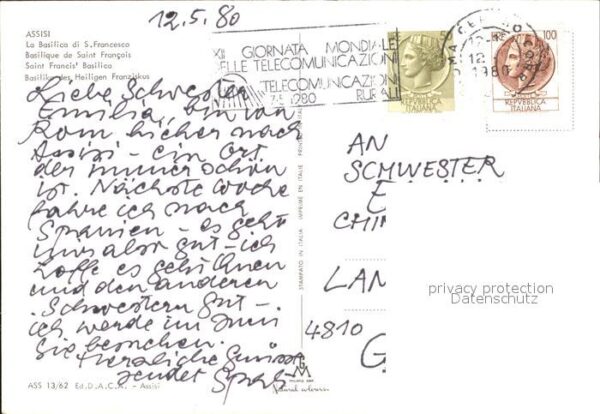 12.5.80
ASSISI
La Basilica di S. Francesco
Basilique de Saint François
Saint Francis' Basilica
Basilika des Heiligen Franziskus
Liebe Schwester
Emilia, bin von
Rom hierher nach
Assisi - ein Ort
der immer schön
ist. Nächste Woche
fahre ich nach
Spanien - es geht
mir aber gut - ich
hoffe es geht Ihnen
und den anderen
Schwestern gut -
ich werde im Juni
Sie besuchen.
Herzliche Grüsse
sendet
ASS 13/62 Ed. D.A.C.A. - Assisi
STAMPATO IN ITALIA IMPRIMÉ EN ITALIE
XII GIORNATA MONDIALE
DELLE TELECOMUNICAZIONI
TELECOMUNICAZIONI
RURALI
1980
12
1980
50
REPVBBLICA
ITALIANA
100
REPVBBLICA
ITALIANA
AN
SCHWESTER
E
CHI
LAN
4810
G
privacy protection
Datenschutz